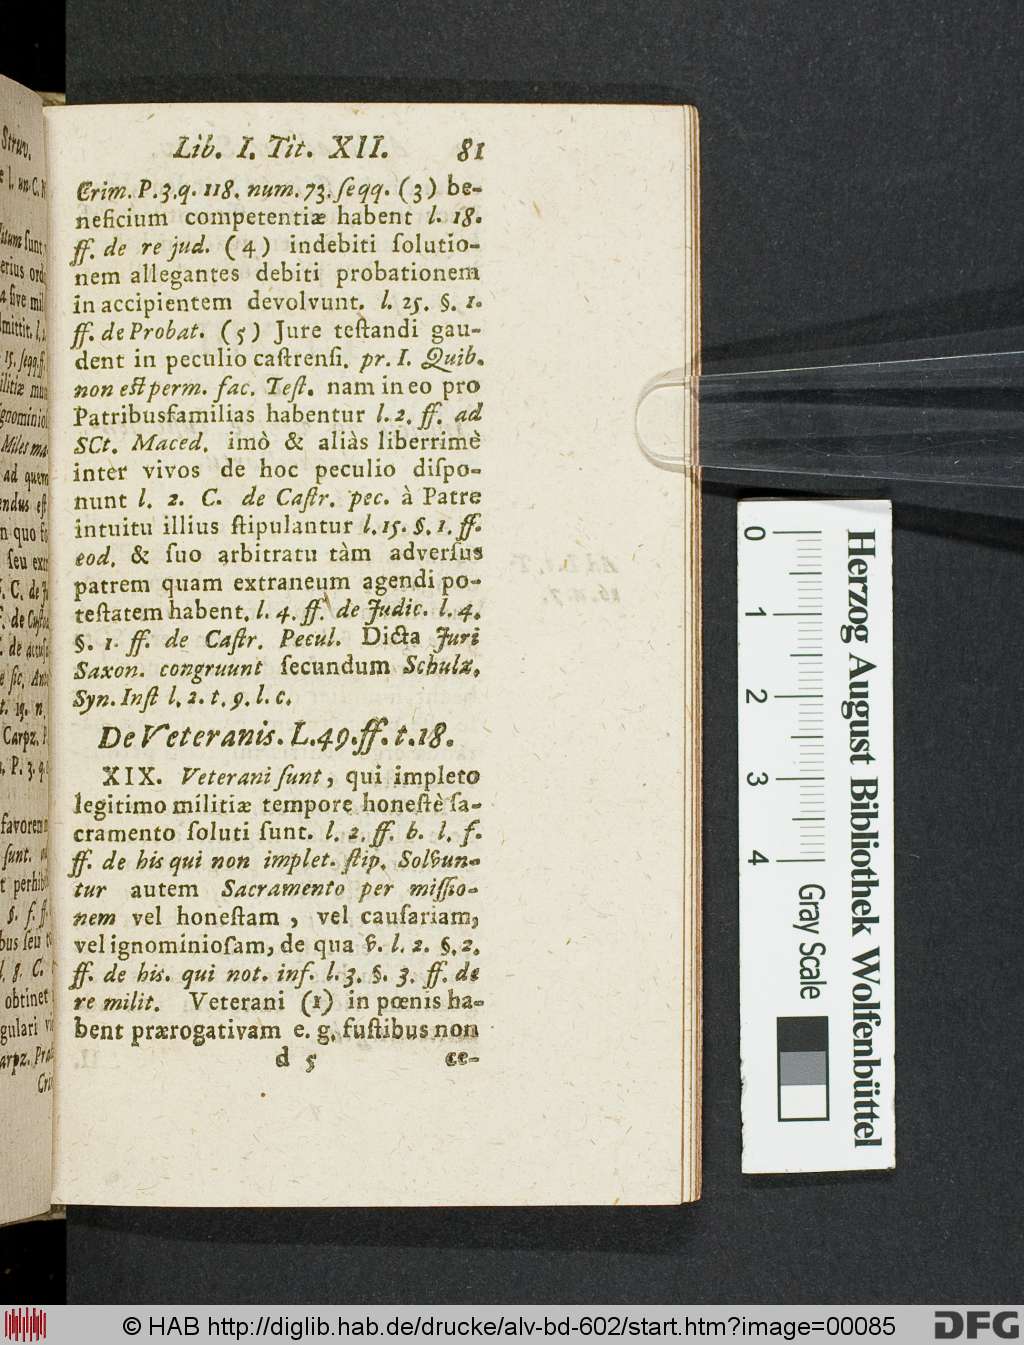 Struv.
Lib. I. Tit. XII. 81
Crim. P. 3. q. 118. num. 73. ſeqq. (3) be-
neficium competentiæ habent l. 18.
ff. de re jud. (4) indebiti ſolutio-
nem allegantes debiti probationem
in accipientem devolvunt. l. 25. §. 1.
ff. de Probat. (5) Jure teſtandi gau-
dent in peculio caſtrenſi. pr. I. Quib.
non eſt perm. fac. Teſt. nam in eo pro
Patribusfamilias habentur l. 2. ff. ad
SCt. Maced. imò & aliàs liberrimè
inter vivos de hoc peculio diſpo-
nunt l. 2. C. de Caſtr. pec. à Patre
intuitu illius ſtipulantur l. 15. §. 1. ff.
eod. & ſuo arbitratu tàm adverſus
patrem quam extraneum agendi po-
teſtatem habent. l. 4. ff. de Judic. l. 4.
§. 1. ff. de Caſtr. Pecul. Dicta Juri
Saxon. congruunt ſecundum Schulz,
Syn. Inſt l. 2. t. 9. l. c.
De Veteranis. L. 49. ff. t. 18.
XIX. Veterani ſunt, qui impleto
legitimo militiæ tempore honeſtè ſa-
cramento ſoluti ſunt. l. 2. ff. b. l. f.
ff. de his qui non implet. ſtip. Solvun-
tur autem Sacramento per miſſio-
nem vel honeſtam, vel cauſariam,
vel ignominioſam, de qua v. l. 2. §. 2.
ff. de his. qui not. inf. l. 3. §. 3. ff. de
re milit. Veterani (1) in pœnis ha-
bent prærogativam e. g. fuſtibus non
d 5 ce-
0 1 2 3 4
Gray Scale
Herzog August Bibliothek Wolfenbüttel
© HAB http://diglib.hab.de/drucke/alv-bd-602/start.htm?image=00085
DFG